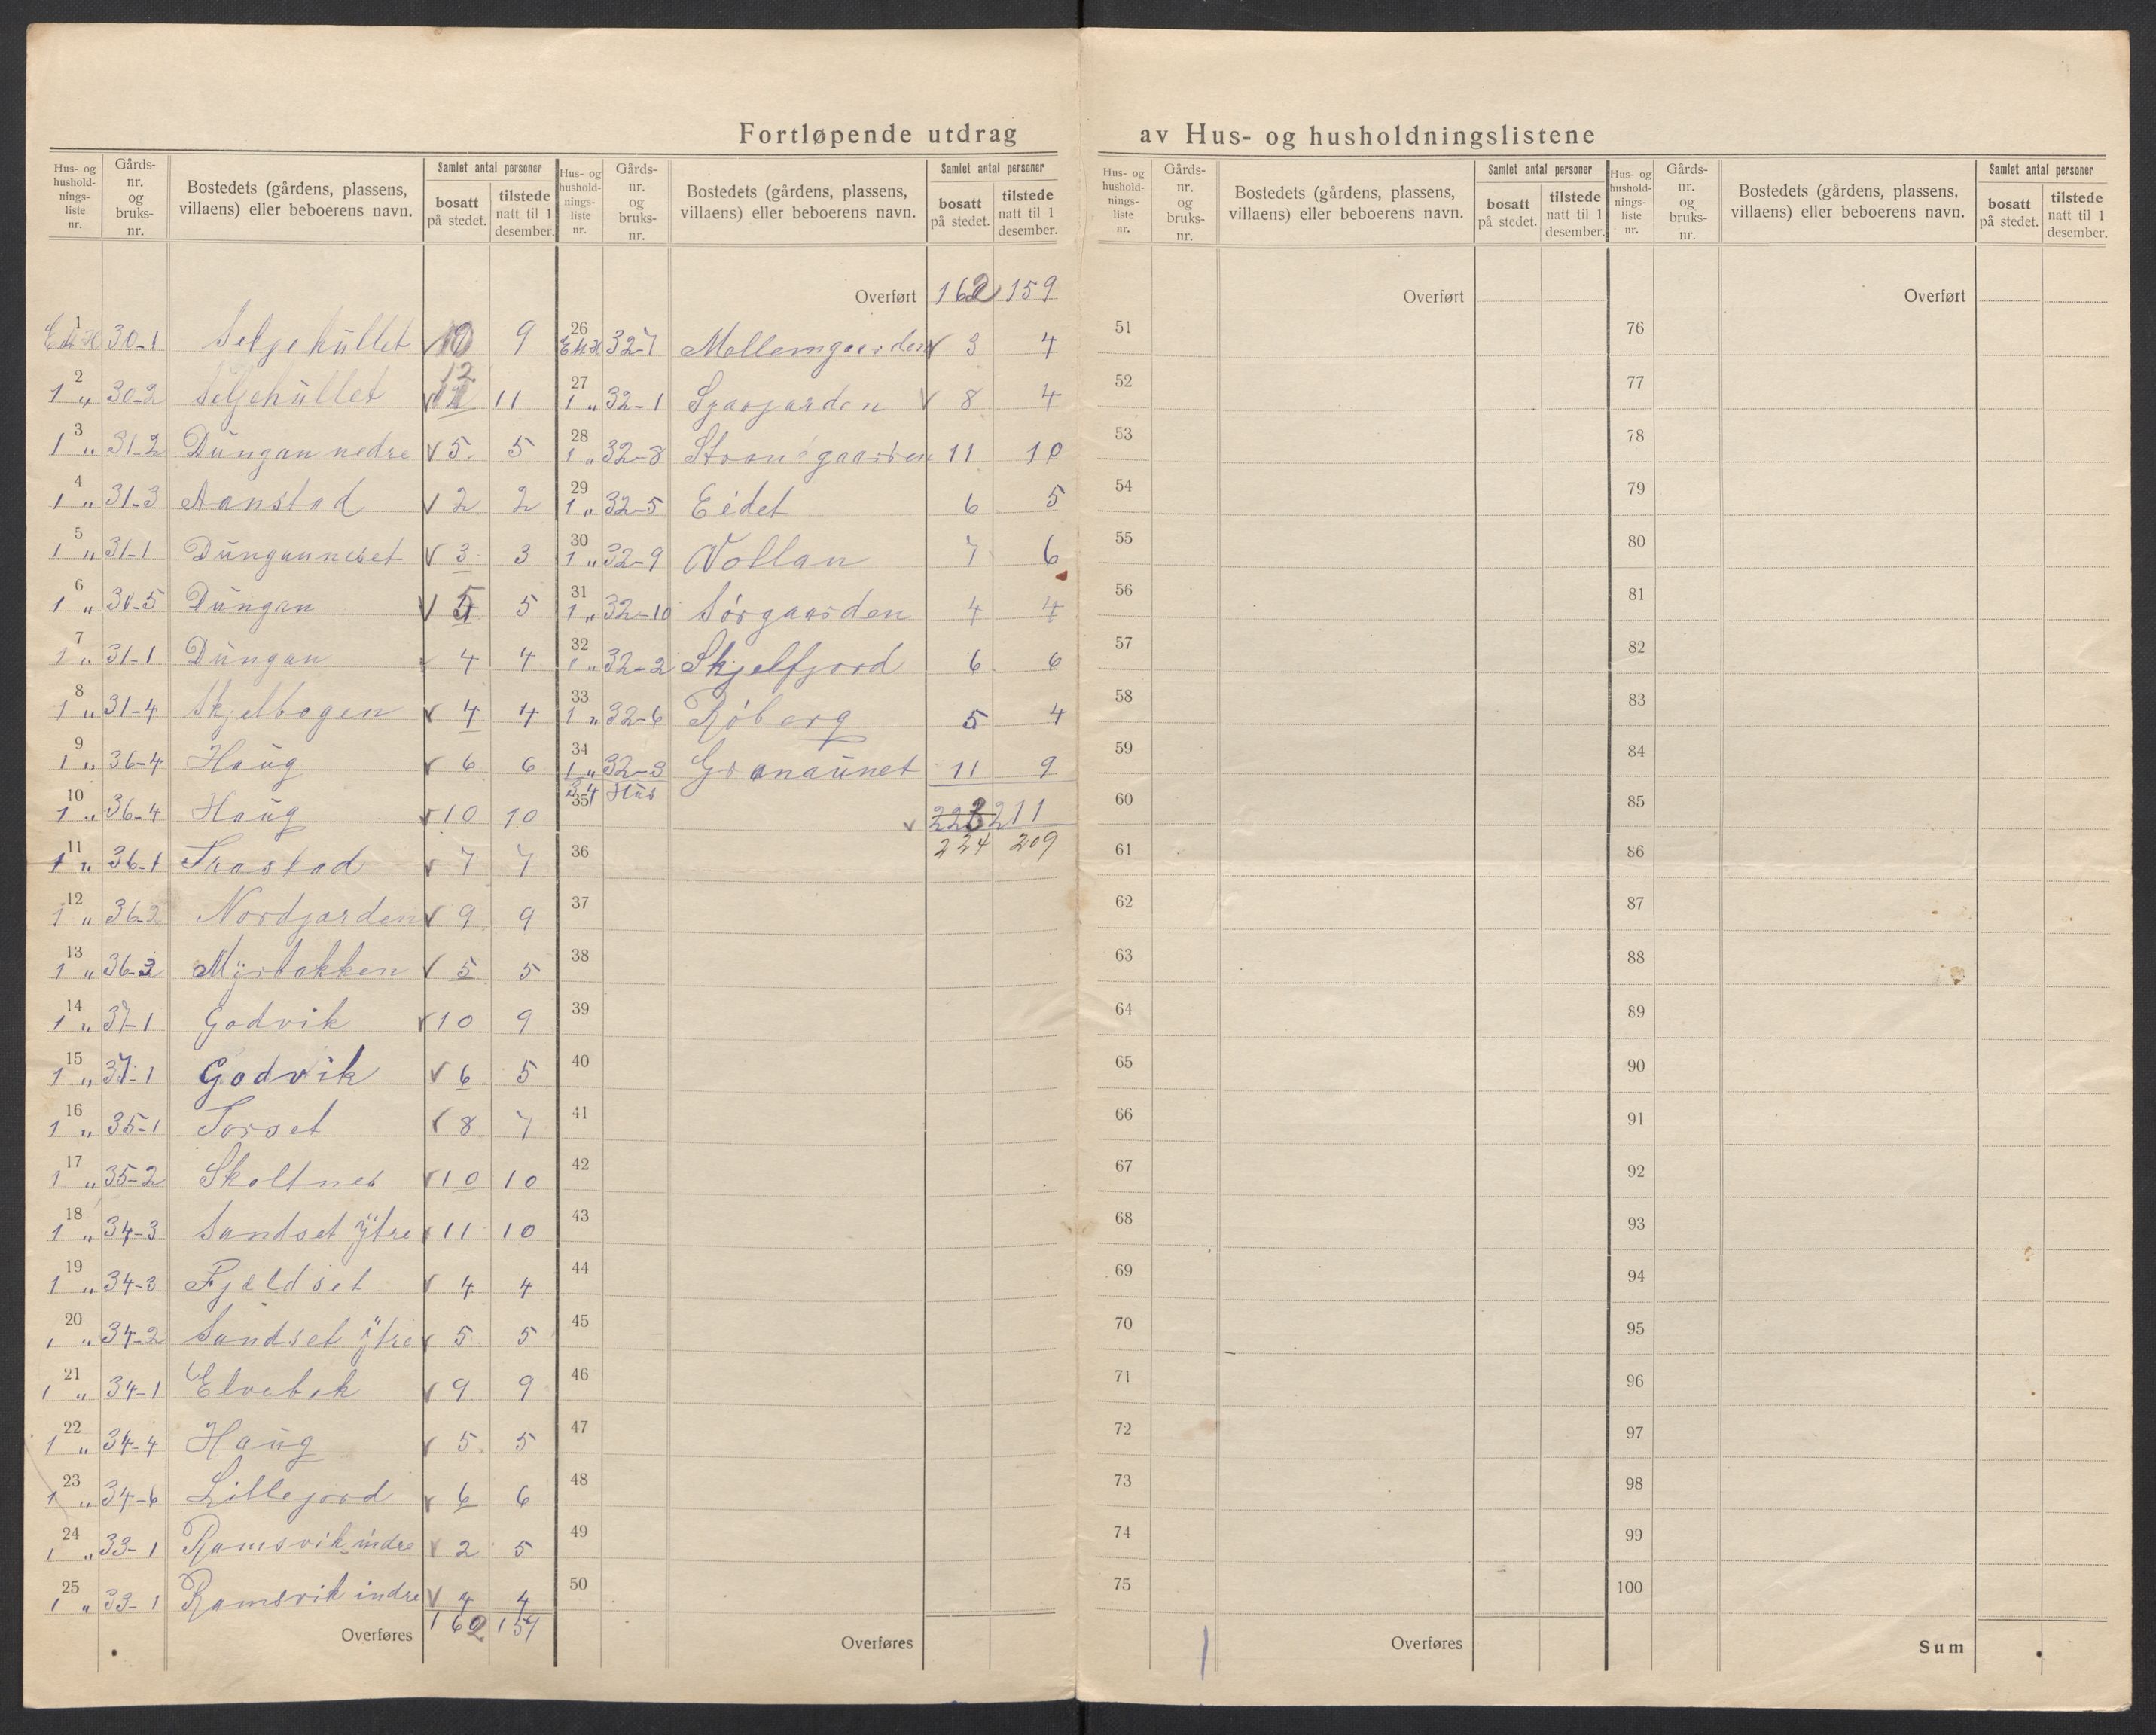 Fortløpende utdrag av Hus- og husholdningslistene
Hus- og hushold-nings-liste nr. Gårds-nr. og bruks-nr. Bostedets (gårdens, plassens, villaens) eller beboerens navn. Samlet antal personer bosatt på stedet. tilstede natt til 1 desember.
1 Et H 30-1 Seljehullet 10 9
2 1 „ 30-2 Seljehullet 12 11
3 1 „ 31-2 Dungan nedre 5 5
4 1 „ 31-3 Aanstad 2 2
5 1 „ 31-1 Dunganneset 3 3
6 1 „ 30-5 Dungan 5 5
7 1 „ 31-1 Dungan 4 4
8 1 „ 31-4 Skjelbogen 4 4
9 1 „ 36-4 Haug 6 6
10 1 „ 36-4 Haug 10 10
11 1 „ 36-1 Trastad 7 7
12 1 „ 36-2 Nordgarden 9 9
13 1 „ 36-3 Myrbakken 5 5
14 1 „ 37-1 Godvik 10 9
15 1 „ 37-1 Godvik 6 5
16 1 „ 35-1 Torset 8 7
17 1 „ 35-2 Skoltnes 10 10
18 1 „ 34-3 Sandset ytre 11 10
19 1 „ 34-3 Fjeldset 4 4
20 1 „ 34-2 Sandset ytre 5 5
21 1 „ 34-1 Elvebak 9 9
22 1 „ 34-4 Haug 5 5
23 1 „ 34-6 Lillejord 6 6
24 1 „ 33-1 Ramsvik indre 2 5
25 1 „ 33-1 Ramsvik indre 4 4
Overføres 162 157
Hus- og hushold-nings-liste nr. Gårds-nr. og bruks-nr. Bostedets (gårdens, plassens, villaens) eller beboerens navn. Samlet antal personer bosatt på stedet. tilstede natt til 1 desember.
Overført 162 159
26 Et H 32-7 Mellemgaarden 3 4
27 1 „ 32-1 8 4
28 1 „ 32-8 11 10
29 1 „ 32-5 Eidet 6 5
30 1 „ 32-9 Vollan 7 6
31 1 „ 32-10 Sørgaarden 4 4
32 1 „ 32-2 Skjelfjord 6 6
33 1 „ 32-6 Røberg 5 4
34 1 „ 32-3 Granaunet 11 9
34 Hus
35 223 211
36 224 209
37
38
39
40
41
42
43
44
45
46
47
48
49
50
Overføres
Hus- og hushold-nings-liste nr. Gårds-nr. og bruks-nr. Bostedets (gårdens, plassens, villaens) eller beboerens navn. Samlet antal personer bosatt på stedet. tilstede natt til 1 desember.
Overført
51
52
53
54
55
56
57
58
59
60
61
62
63
64
65
66
67
68
69
70
71
72
73
74
75
Overføres
Hus- og hushold-nings-liste nr. Gårds-nr. og bruks-nr. Bostedets (gårdens, plassens, villaens) eller beboerens navn. Samlet antal personer bosatt på stedet. tilstede natt til 1 desember.
Overført
76
77
78
79
80
81
82
83
84
85
86
87
88
89
90
91
92
93
94
95
96
97
98
99
100
Sum